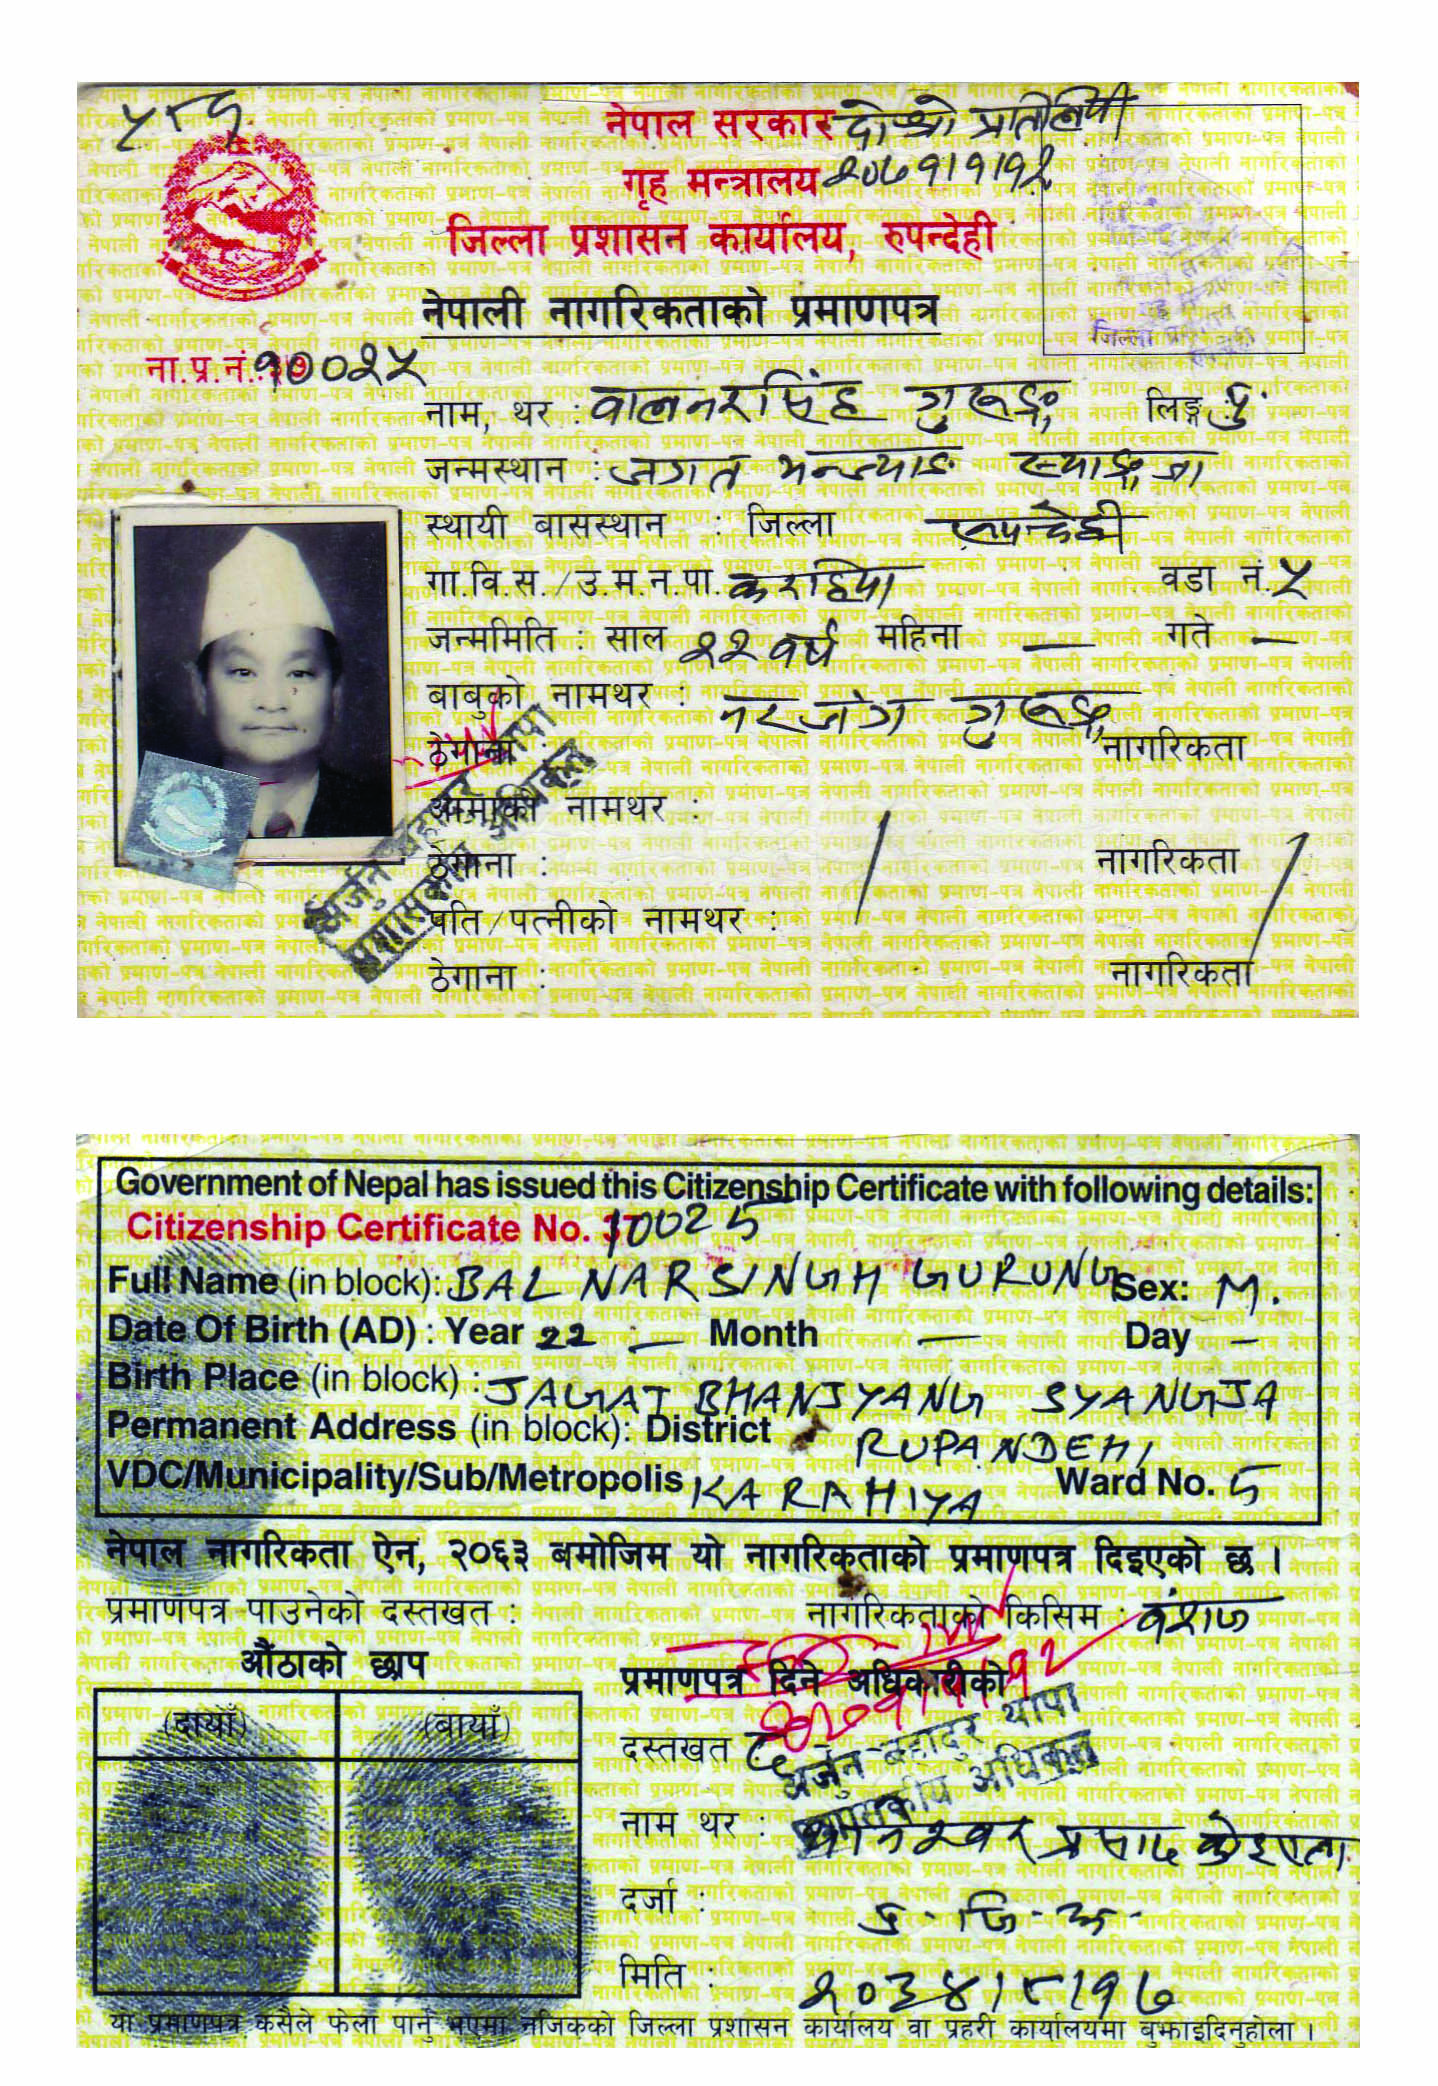 नेपाल सरकार दोश्रो प्रतिलिपी
गृह मन्त्रालय २०७१।१।१२
जिल्ला प्रशासन कार्यालय, रुपन्देही
नेपाली नागरिकताको प्रमाणपत्र
ना.प्र.नं. १००२५
नाम, थर : बालनरसिंह गुरूङ्ग लिङ्ग पु
जन्मस्थान : जगत भन्ज्याङ स्याङ्जा
स्थायी बासस्थान : जिल्ला रूपन्देही
गा.वि.स./उ.म.न.पा. करहिया वडा नं. ५
जन्ममिति : साल २२ वर्ष महिना — गते —
बाबुको नामथर : नरजंग गुरूङ्ग
ठेगाना : नागरिकता
आमाको नामथर :
ठेगाना : नागरिकता
पति/पत्नीको नामथर :
ठेगाना : नागरिकता
अर्जुन बहादुर थापा
प्रशासकीय अधिकृत
Government of Nepal has issued this Citizenship Certificate with following details:
Citizenship Certificate No. 10025
Full Name (in block): BAL NARSINGH GURUNG Sex: M.
Date Of Birth (AD) : Year 22 — Month — Day —
Birth Place (in block) : JAGAT BHANJYANG SYANGJA
Permanent Address (in block): District RUPANDEHI
VDC/Municipality/Sub/Metropolis KARAHIYA Ward No. 5
नेपाल नागरिकता ऐन, २०६३ बमोजिम यो नागरिकताको प्रमाणपत्र दिइएको छ ।
प्रमाणपत्र पाउनेको दस्तखत : नागरिकताको किसिम : वंशज
औंठाको छाप प्रमाणपत्र दिने अधिकारीको
(दायाँ) (बायाँ)
दस्तखत
अर्जुन बहादुर थापा
प्रशासकीय अधिकृत
नाम थर : प्रसाद कोइराला
दर्जा : प्र. जि. अ.
मिति : २०३४।८।१७
यो प्रमाणपत्र कसैले फेला पार्नु भएमा नजिकको जिल्ला प्रशासन कार्यालय वा प्रहरी कार्यालयमा बुझाइदिनुहोला ।